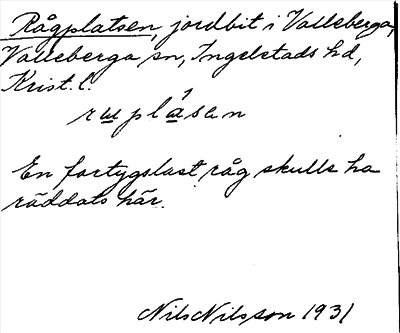 Rågplatsen, jordbit i Valleberga,
Valleberga sn, Ingelstads hd,
Krist. l.
rɯplásan
En fartygslast råg skulle ha
räddats här.
Nils Nilsson 1931